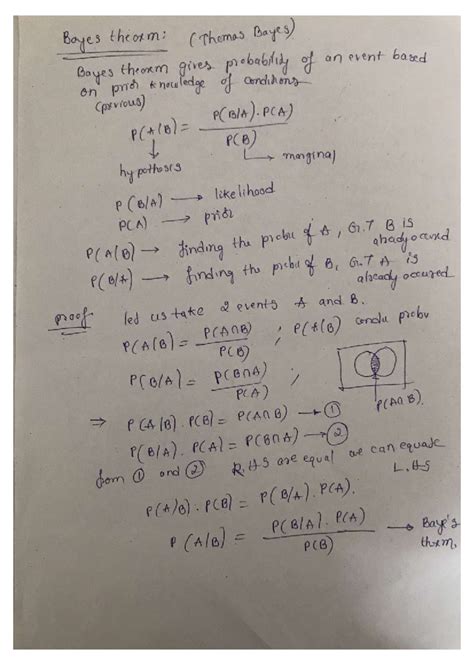 Bayes theorm: (Thomas Bayes)
Bayes theorm gives probability of an event based
on prior knowledge of conditions
(previous)
P(A/B) = P(B/A).P(A) / P(B)
hypothesis
marginal
P(B/A) → likelihood
P(A) → prior
P(A/B) → finding the probu of A, G.T B is
already occured
P(B/A) → finding the probu of B, G.T A is
already occured
proof led us take 2 events A and B.
P(A/B) = P(A∩B) / P(B) ; P(A/B) condu probu
P(B/A) = P(B∩A) / P(A) ;
P(A∩B).
⇒ P(A/B).P(B) = P(A∩B) → ①
P(B/A).P(A) = P(B∩A) → ②
from ① and ② R.H.S are equal we can equate
L.H.S
P(A/B).P(B) = P(B/A).P(A).
P(A/B) = P(B/A).P(A) / P(B) → Baye's
thrm.